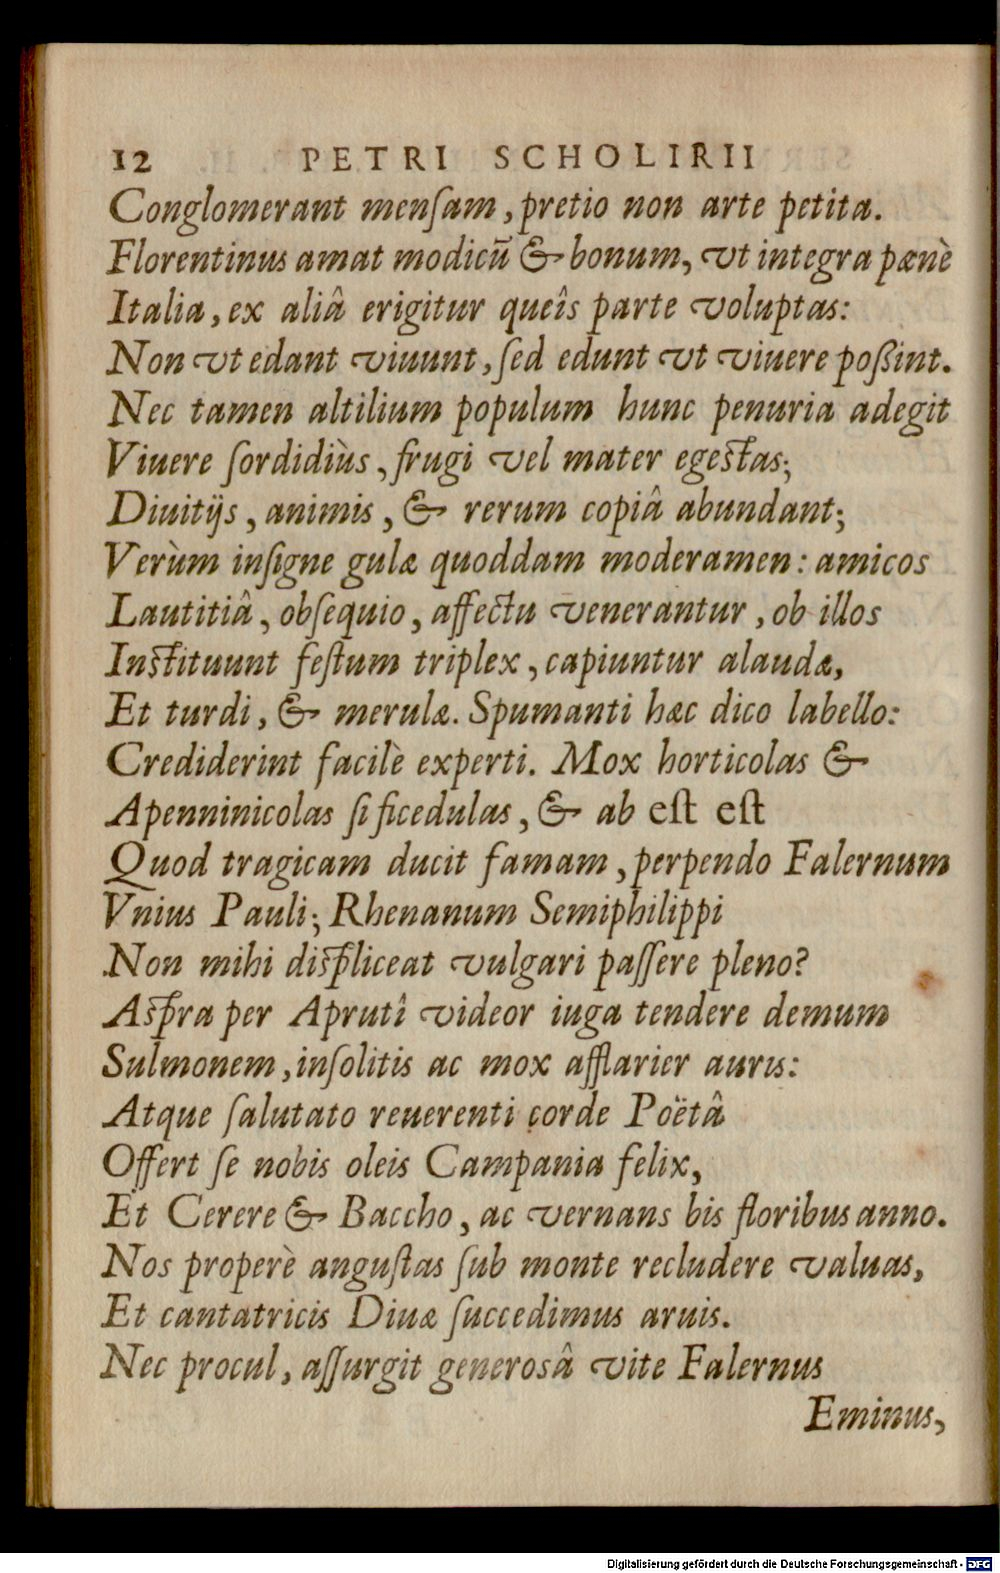 12 PETRI SCHOLIRII
Conglomerant menſam, pretio non arte petita.
Florentinus amat modicū & bonum, vt integra pænè
Italia, ex aliâ erigitur queîs parte voluptas:
Non vt edant viuunt, ſed edunt vt viuere poßint.
Nec tamen altilium populum hunc penuria adegit
Viuere ſordidiùs, frugi vel mater egeſtas;
Diuitijs, animis, & rerum copiâ abundant;
Verùm inſigne gulæ quoddam moderamen: amicos
Lautitiâ, obſequio, affectu venerantur, ob illos
Inſtituunt feſtum triplex, capiuntur alaudæ,
Et turdi, & merulæ. Spumanti hæc dico labello:
Crediderint facilè experti. Mox horticolas &
Apenninicolas ſi ficedulas, & ab eſt eſt
Quod tragicam ducit famam, perpendo Falernum
Vnius Pauli; Rhenanum Semiphilippi
Non mihi diſpliceat vulgari paſſere pleno?
Aſpra per Aprutî videor iuga tendere demum
Sulmonem, inſolitis ac mox afflarier auris:
Atque ſalutato reuerenti corde Poëtâ
Offert ſe nobis oleis Campania felix,
Et Cerere & Baccho, ac vernans bis floribus anno.
Nos properè anguſtas ſub monte recludere valuas,
Et cantatricis Diuæ ſuccedimus aruis.
Nec procul, aſſurgit generosâ vite Falernus
Eminus,
Digitalisierung gefördert durch die Deutsche Forschungsgemeinschaft - DFG